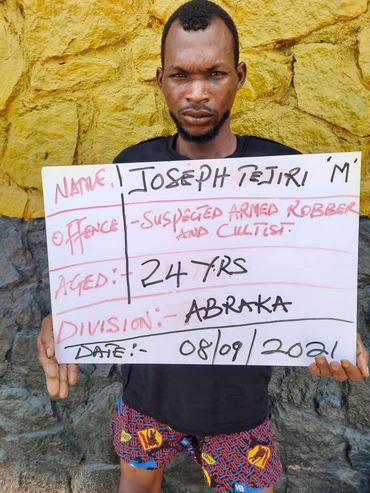 NAME. JOSEPH TEJIRI 'M'
OFFENCE - SUSPECTED ARMED ROBBER
AND CULTIST.
AGED:- 24 YRS
DIVISION:- ABRAKA
DATE:- 08/09/2021